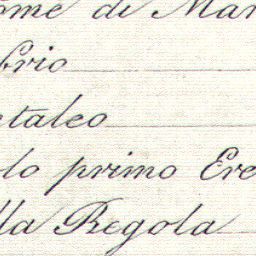 ome di Mar
frio
etaleo
lo primo Ere
lla Regola